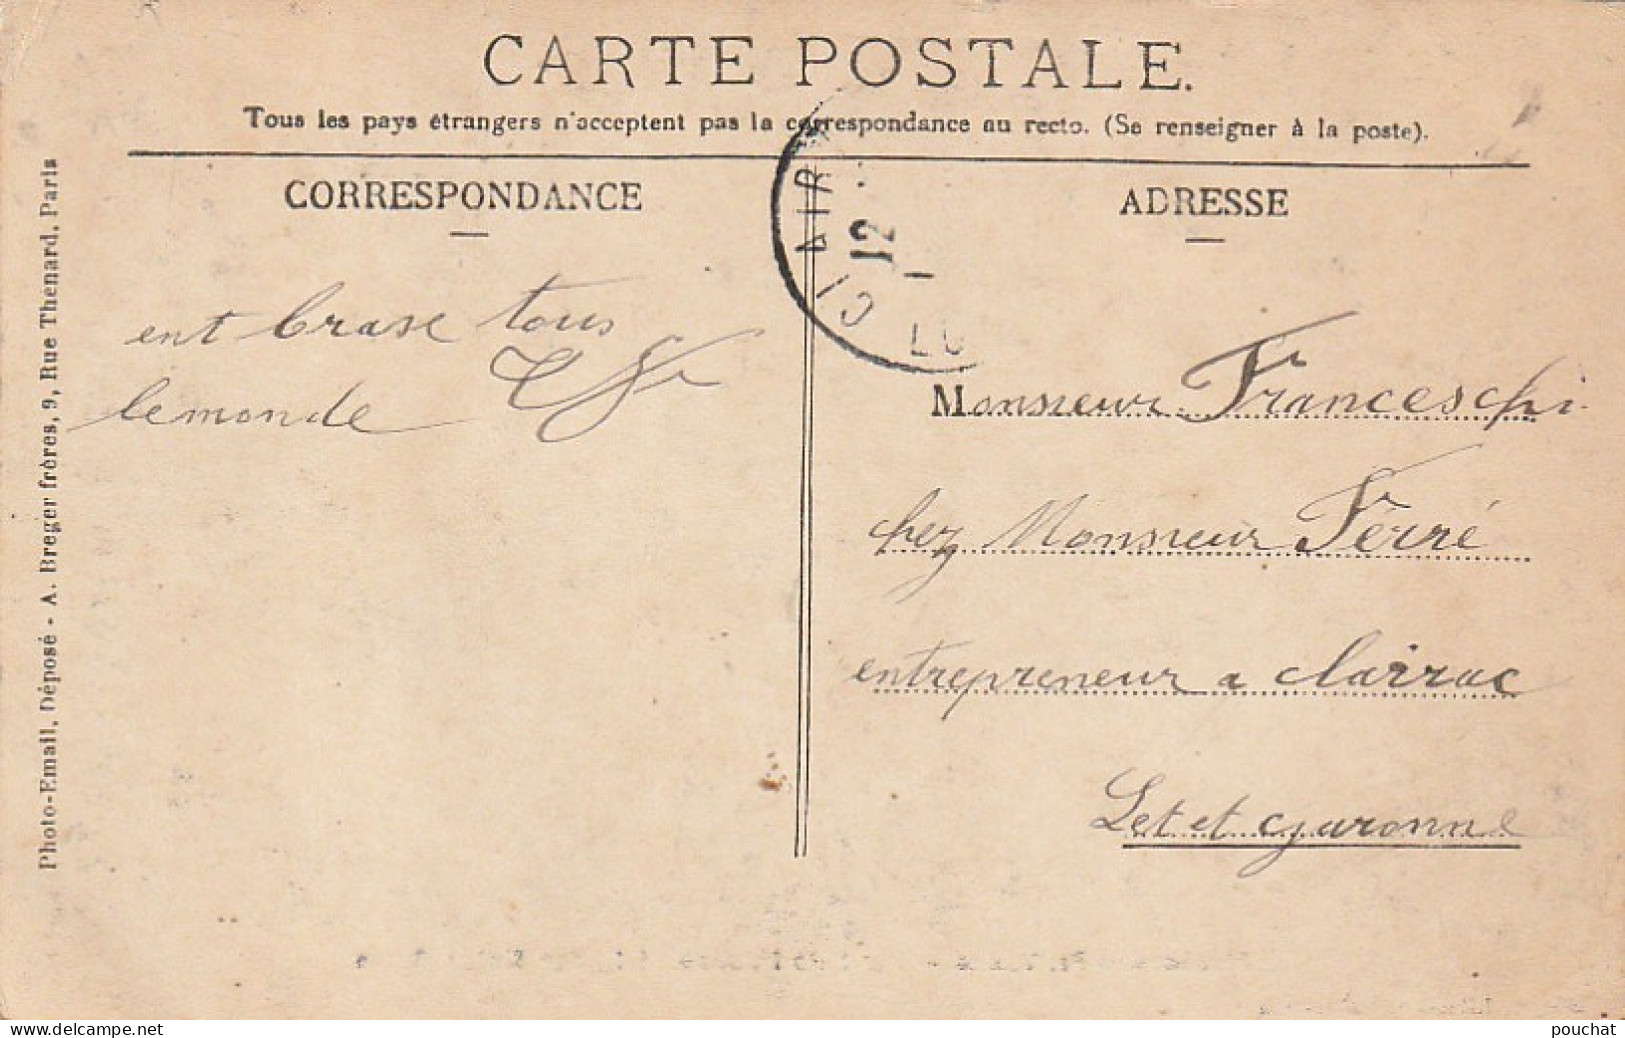 CARTE POSTALE.
Tous les pays étrangers n'acceptent pas la correspondance au recto. (Se renseigner à la poste).
CORRESPONDANCE
ADRESSE
ent brase tous
lemonde
CLAIR
12
1
LO
Monsieur Franceschi
chez Monsieur Ferré
entrepreneur a clairac
Let et garonne
Photo-Email, Déposé - A. Breger frères, 9, Rue Thenard, Paris
www.delcampe.net
pouchat